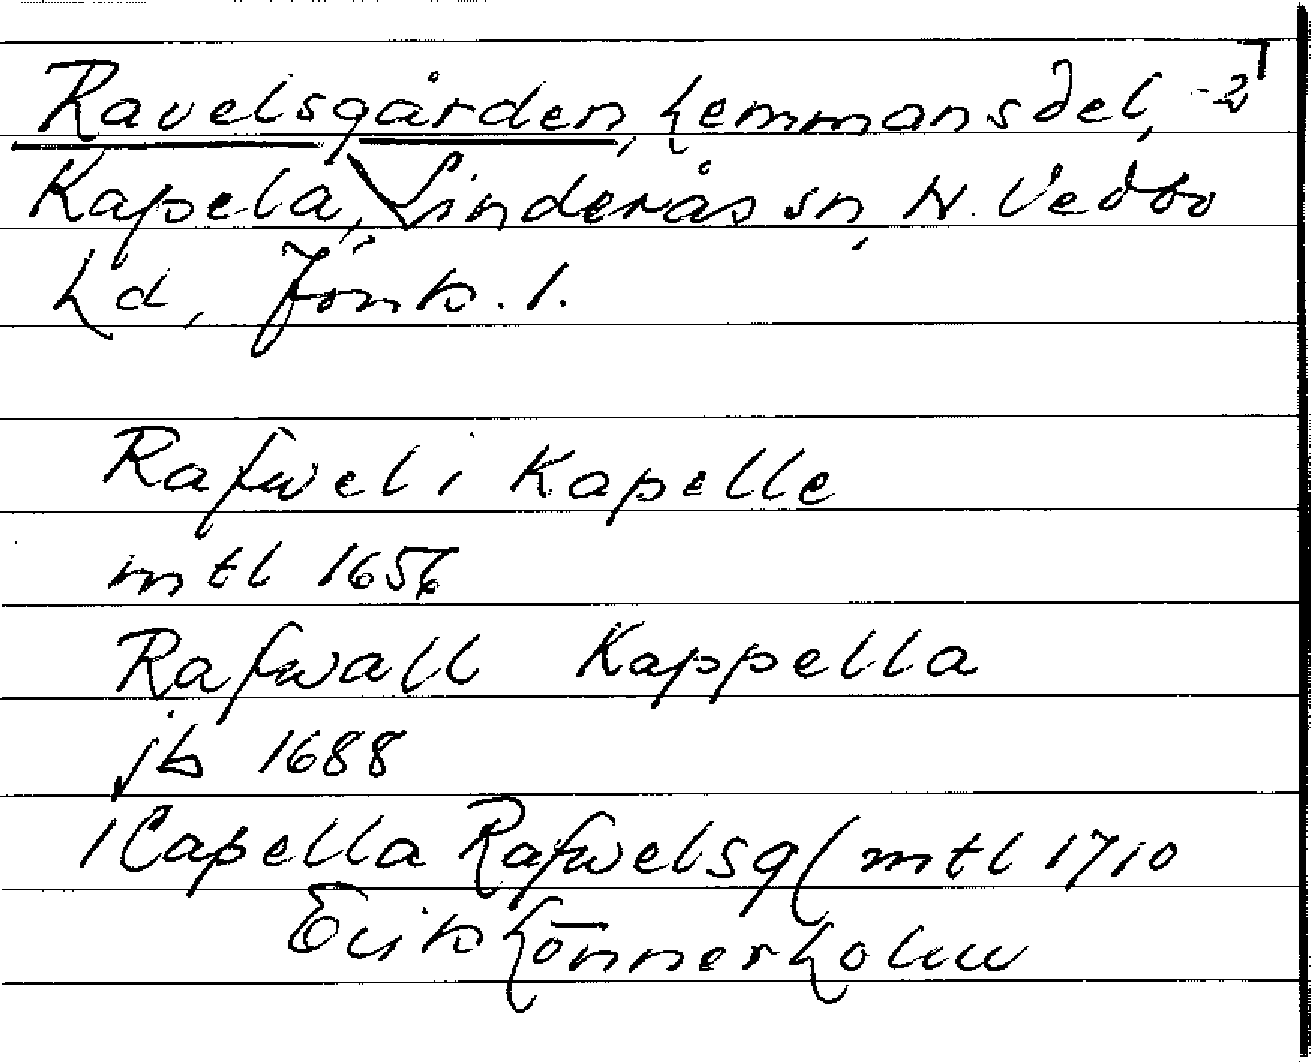 Ravelsgården, hemmansdel, -2
Kapela, Linderås sn, N. Vedbo
hd, Jönk. l.
Rafwel i Kapelle
mtl 1656
Rafwall Kappella
jb 1688
I Capella Rafwelsg( mtl 1710
Erik Hönnerholm